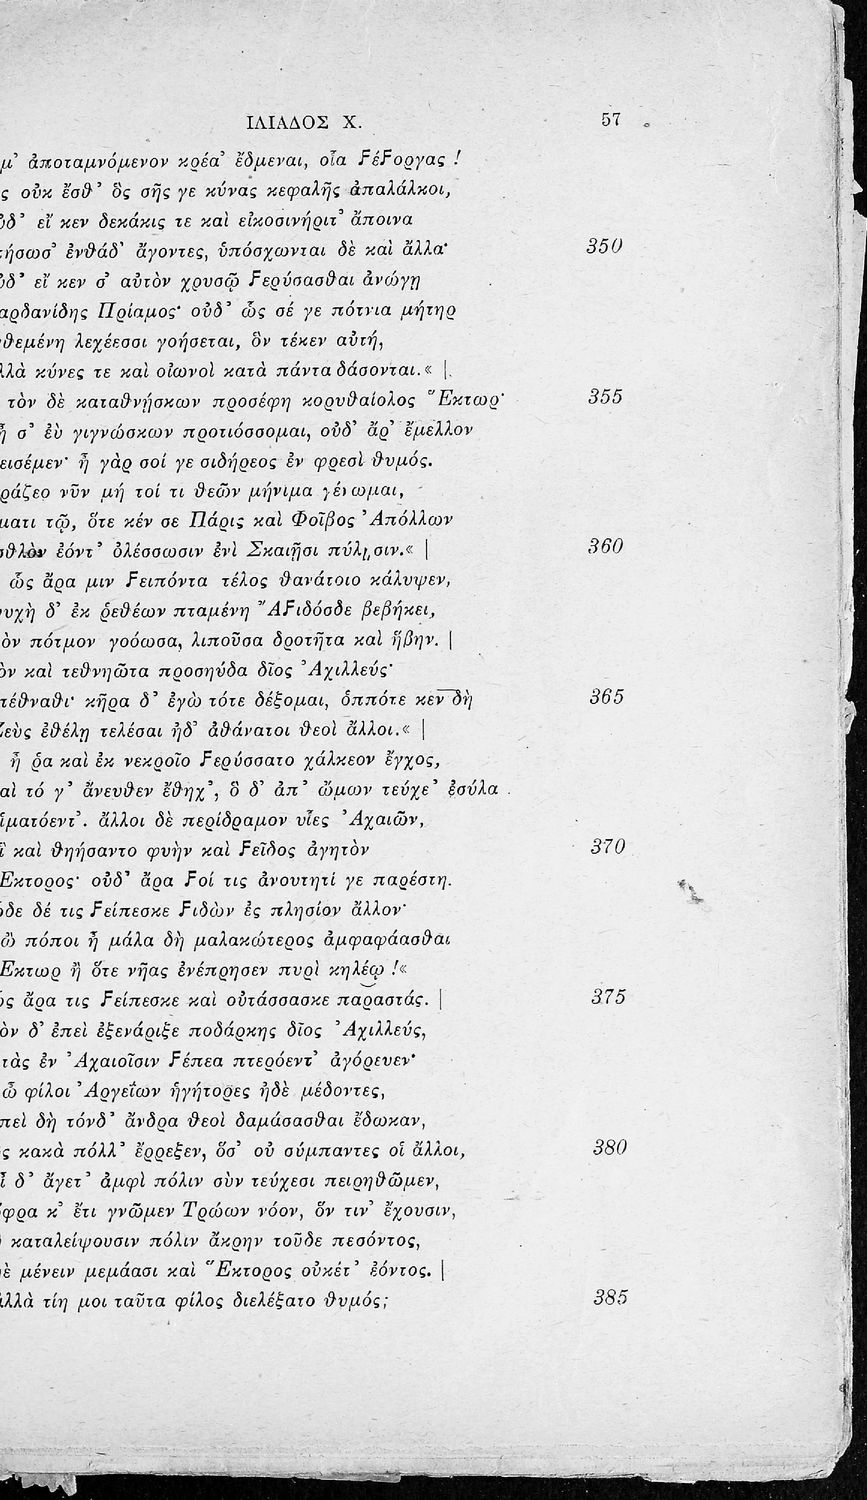 ΙΛΙΑΔΟΣ Χ. 57
μ᾽ ἀποταμνόμενον κρέα᾽ ἔδμεναι, οἷα ϝέϝοργας !
ς οὐκ ἔσθ᾽ ὃς σῆς γε κύνας κεφαλῆς ἀπαλάλκοι,
ὐδ᾽ εἴ κεν δεκάκις τε καὶ εἰκοσινήριτ᾽ ἄποινα
τήσωσ᾽ ἐνθάδ᾽ ἄγοντες, ὑπόσχωνται δὲ καὶ ἄλλα· 350
ὐδ᾽ εἴ κεν σ᾽ αὐτὸν χρυσῷ ϝερύσασθαι ἀνώγῃ
αρδανίδης Πρίαμος· οὐδ᾽ ὧς σέ γε πότνια μήτηρ
θεμένη λεχέεσσι γοήσεται, ὃν τέκεν αὐτή,
λλὰ κύνες τε καὶ οἰωνοὶ κατὰ πάντα δάσονται.« |
τὸν δὲ καταθνῄσκων προσέφη κορυθαίολος Ἕκτωρ· 355
ἦ σ᾽ ἐὺ γιγνώσκων προτιόσσομαι, οὐδ᾽ ἄρ᾽ ἔμελλον
εισέμεν· ἦ γὰρ σοί γε σιδήρεος ἐν φρεσὶ θυμός.
ράζεο νῦν μή τοί τι θεῶν μήνιμα γένωμαι,
ματι τῷ, ὅτε κέν σε Πάρις καὶ Φοῖβος Ἀπόλλων
σθλὸν ἐόντ᾽ ὀλέσσωσιν ἐνὶ Σκαιῇσι πύλῃσιν.« | 360
ὧς ἄρα μιν ϝειπόντα τέλος θανάτοιο κάλυψεν,
υχὴ δ᾽ ἐκ ῥεθέων πταμένη Ἄϝιδόσδε βεβήκει,
ὸν πότμον γοόωσα, λιποῦσα δροτῆτα καὶ ἥβην. |
ὸν καὶ τεθνηῶτα προσηύδα δῖος Ἀχιλλεύς·
τέθναθι· κῆρα δ᾽ ἐγὼ τότε δέξομαι, ὁππότε κεν δὴ 365
Ζεὺς ἐθέλῃ τελέσαι ἠδ᾽ ἀθάνατοι θεοὶ ἄλλοι.« |
ἦ ῥα καὶ ἐκ νεκροῖο ϝερύσσατο χάλκεον ἔγχος,
αὶ τό γ᾽ ἄνευθεν ἔθηχ᾽, ὃ δ᾽ ἀπ᾽ ὤμων τεύχε᾽ ἐσύλα
ἱματόεντ᾽. ἄλλοι δὲ περίδραμον υἷες Ἀχαιῶν,
ἳ καὶ θηήσαντο φυὴν καὶ ϝεῖδος ἀγητὸν 370
Ἕκτορος· οὐδ᾽ ἄρα ϝοί τις ἀνουτητί γε παρέστη.
ὧδε δέ τις ϝείπεσκε ϝιδὼν ἐς πλησίον ἄλλον·
ὢ πόποι ἦ μάλα δὴ μαλακώτερος ἀμφαφάασθαι
Ἕκτωρ ἢ ὅτε νῆας ἐνέπρησεν πυρὶ κηλέῳ !«
ὥς ἄρα τις ϝείπεσκε καὶ οὐτάσσασκε παραστάς. | 375
ὸν δ᾽ ἐπεὶ ἐξενάριξε ποδάρκης δῖος Ἀχιλλεύς,
τὰς ἐν Ἀχαιοῖσιν ϝέπεα πτερόεντ᾽ ἀγόρευεν·
ὦ φίλοι Ἀργεΐων ἡγήτορες ἠδὲ μέδοντες,
πεὶ δὴ τόνδ᾽ ἄνδρα θεοὶ δαμάσασθαι ἔδωκαν,
ς κακὰ πόλλ᾽ ἔρρεξεν, ὅσ᾽ οὐ σύμπαντες οἱ ἄλλοι, 380
ἰ δ᾽ ἄγετ᾽ ἀμφὶ πόλιν σὺν τεύχεσι πειρηθῶμεν,
φρα κ᾽ ἔτι γνῶμεν Τρώων νόον, ὅν τιν᾽ ἔχουσιν,
καταλείψουσιν πόλιν ἄκρην τοῦδε πεσόντος,
ὲ μένειν μεμάασι καὶ Ἕκτορος οὐκέτ᾽ ἐόντος. |
λλὰ τίη μοι ταῦτα φίλος διελέξατο θυμός; 385